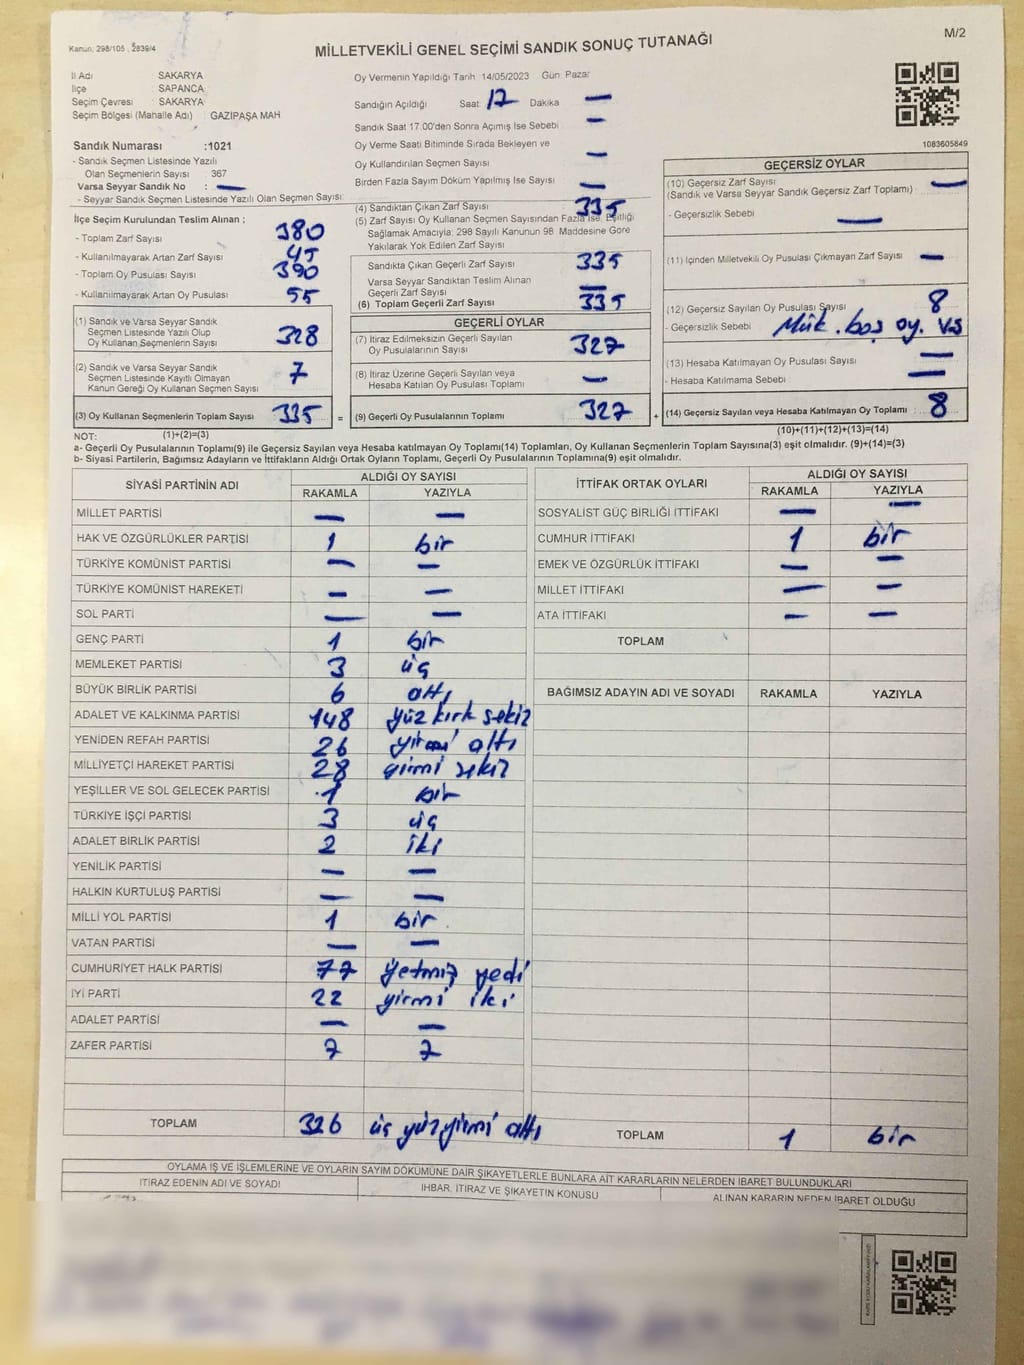 Kanun, 298/105 , 2839/4
M/2
MİLLETVEKİLİ GENEL SEÇİMİ SANDIK SONUÇ TUTANAĞI
İl Adı SAKARYA
İlçe SAPANCA
Seçim Çevresi : SAKARYA
Seçim Bölgesi (Mahalle Adı) : GAZİPAŞA MAH
Sandık Numarası :1021
- Sandık Seçmen Listesinde Yazılı
Olan Seçmenlerin Sayısı : 367
Varsa Seyyar Sandık No : —
- Seyyar Sandık Seçmen Listesinde Yazılı Olan Seçmen Sayısı:
İlçe Seçim Kurulundan Teslim Alınan ;
- Toplam Zarf Sayısı 380
- Kullanılmayarak Artan Zarf Sayısı 45
- Toplam Oy Pusulası Sayısı 390
- Kullanılmayarak Artan Oy Pusulası 55
(1) Sandık ve Varsa Seyyar Sandık
Seçmen Listesinde Yazılı Olup
Oy Kullanan Seçmenlerin Sayısı 328
(2) Sandık ve Varsa Seyyar Sandık
Seçmen Listesinde Kayıtlı Olmayan
Kanun Gereği Oy Kullanan Seçmen Sayısı 7
(3) Oy Kullanan Seçmenlerin Toplam Sayısı 335 =
Oy Vermenin Yapıldığı Tarih 14/05/2023 Gün: Pazar
Sandığın Açıldığı Saat: 17 Dakika —
Sandık Saat 17.00'den Sonra Açılmış İse Sebebi —
Oy Verme Saati Bitiminde Sırada Bekleyen ve
Oy Kullandırılan Seçmen Sayısı —
Birden Fazla Sayım Döküm Yapılmış İse Sayısı —
(4) Sandıktan Çıkan Zarf Sayısı 335
(5) Zarf Sayısı Oy Kullanan Seçmen Sayısından Fazla İse, Eşitliği
Sağlamak Amacıyla; 298 Sayılı Kanunun 98. Maddesine Göre
Yakılarak Yok Edilen Zarf Sayısı
Sandıkta Çıkan Geçerli Zarf Sayısı 335
Varsa Seyyar Sandıktan Teslim Alınan
Geçerli Zarf Sayısı —
(6) Toplam Geçerli Zarf Sayısı 335
GEÇERLİ OYLAR
(7) İtiraz Edilmeksizin Geçerli Sayılan
Oy Pusulalarının Sayısı 327
(8) İtiraz Üzerine Geçerli Sayılan veya
Hesaba Katılan Oy Pusulası Toplamı —
(9) Geçerli Oy Pusulalarının Toplamı 327 +
1083605849
GEÇERSİZ OYLAR
(10) Geçersiz Zarf Sayısı —
(Sandık ve Varsa Seyyar Sandık Geçersiz Zarf Toplamı) :
- Geçersizlik Sebebi —
(11) İçinden Milletvekili Oy Pusulası Çıkmayan Zarf Sayısı —
(12) Geçersiz Sayılan Oy Pusulası Sayısı 8
- Geçersizlik Sebebi Mük. boş oy. vs
(13) Hesaba Katılmayan Oy Pusulası Sayısı —
- Hesaba Katılmama Sebebi —
(14) Geçersiz Sayılan veya Hesaba Katılmayan Oy Toplamı : 8
NOT: (1)+(2)=(3)
(10)+(11)+(12)+(13)=(14)
a- Geçerli Oy Pusulalarının Toplamı(9) ile Geçersiz Sayılan veya Hesaba katılmayan Oy Toplamı(14) Toplamları, Oy Kullanan Seçmenlerin Toplam Sayısına(3) eşit olmalıdır. (9)+(14)=(3)
b- Siyasi Partilerin, Bağımsız Adayların ve İttifakların Aldığı Ortak Oyların Toplamı, Geçerli Oy Pusulalarının Toplamına(9) eşit olmalıdır.
SİYASİ PARTİNİN ADI ALDIĞI OY SAYISI
RAKAMLA YAZIYLA
MİLLET PARTİSİ — —
HAK VE ÖZGÜRLÜKLER PARTİSİ 1 bir
TÜRKİYE KOMÜNİST PARTİSİ — —
TÜRKİYE KOMÜNİST HAREKETİ — —
SOL PARTİ — —
GENÇ PARTİ 1 bir
MEMLEKET PARTİSİ 3 üç
BÜYÜK BİRLİK PARTİSİ 6 altı
ADALET VE KALKINMA PARTİSİ 148 yüz kırk sekiz
YENİDEN REFAH PARTİSİ 26 yirmi altı
MİLLİYETÇİ HAREKET PARTİSİ 28 yirmi sekiz
YEŞİLLER VE SOL GELECEK PARTİSİ 1 bir
TÜRKİYE İŞÇİ PARTİSİ 3 üç
ADALET BİRLİK PARTİSİ 2 iki
YENİLİK PARTİSİ — —
HALKIN KURTULUŞ PARTİSİ — —
MİLLİ YOL PARTİSİ 1 bir
VATAN PARTİSİ — —
CUMHURİYET HALK PARTİSİ 77 yetmiş yedi
İYİ PARTİ 22 yirmi iki
ADALET PARTİSİ — —
ZAFER PARTİSİ 7 7
TOPLAM 326 üç yüz yirmi altı
İTTİFAK ORTAK OYLARI ALDIĞI OY SAYISI
RAKAMLA YAZIYLA
SOSYALİST GÜÇ BİRLİĞİ İTTİFAKI — —
CUMHUR İTTİFAKI 1 bir
EMEK VE ÖZGÜRLÜK İTTİFAKI — —
MİLLET İTTİFAKI — —
ATA İTTİFAKI — —
TOPLAM
BAĞIMSIZ ADAYIN ADI VE SOYADI RAKAMLA YAZIYLA
TOPLAM 1 bir
OYLAMA İŞ VE İŞLEMLERİNE VE OYLARIN SAYIM DÖKÜMÜNE DAİR ŞİKAYETLERLE BUNLARA AİT KARARLARIN NELERDEN İBARET BULUNDUKLARI
İTİRAZ EDENİN ADI VE SOYADI İHBAR, İTİRAZ VE ŞİKAYETİN KONUSU ALINAN KARARIN NEDEN İBARET OLDUĞU